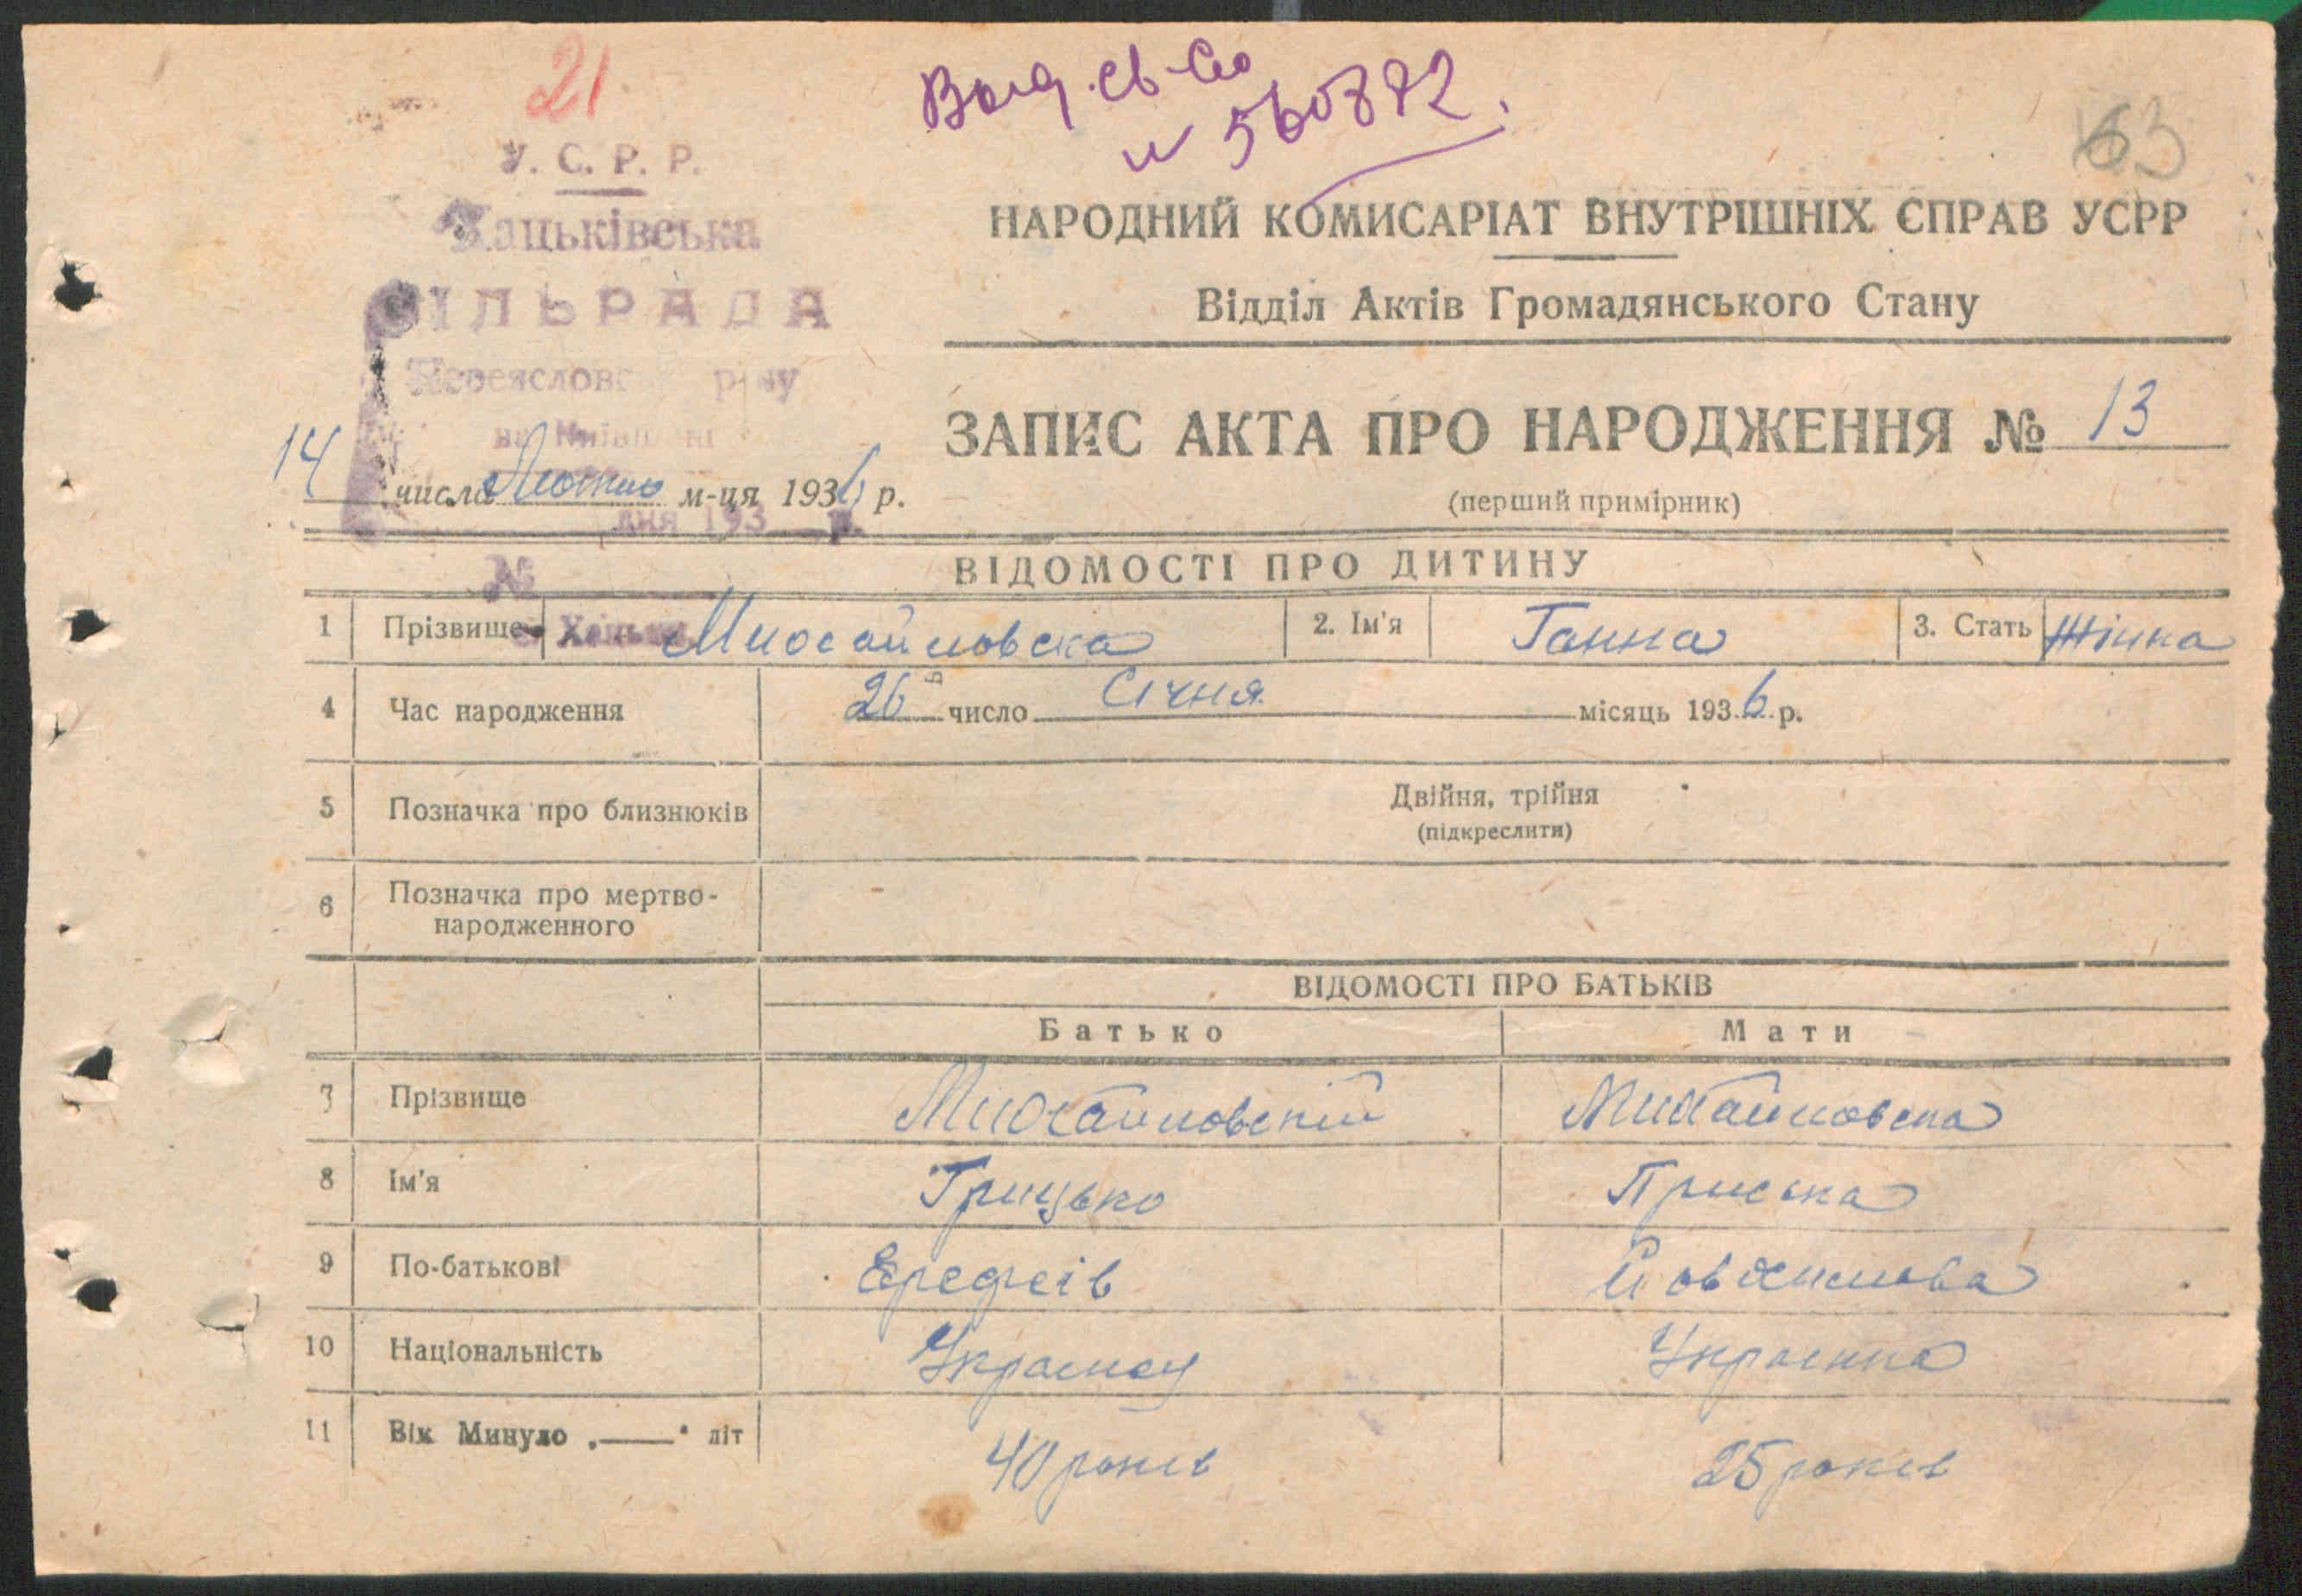 21
Выд. св-во
№ 560872.
63
У. С. Р. Р.
Хацьківська
СІЛЬРАДА
Переясловс р-ну
на Київщині
дня 193 р.
№
НАРОДНИЙ КОМИСАРІАТ ВНУТРІШНІХ СПРАВ УСРР
Відділ Актів Громадянського Стану
ЗАПИС АКТА ПРО НАРОДЖЕННЯ № 13
(перший примірник)
14 числа Лютого м-ця 1936 р.
ВІДОМОСТІ ПРО ДИТИНУ
1 Прізвище Михайловска 2. Ім'я Ганна 3. Стать Жінка
4 Час народження 26 число Січня місяць 1936 р.
5 Позначка про близнюків Двійня, трійня
(підкреслити)
6 Позначка про мертво-
народженного
ВІДОМОСТІ ПРО БАТЬКІВ
Батько Мати
7 Прізвище Михайловский Михайловска
8 Ім'я Грицько Приська
9 По-батькові Єрефеів Йовхимова
10 Національність Украинец Украинка
11 Вік Минуло „——" літ 40 років 25 років